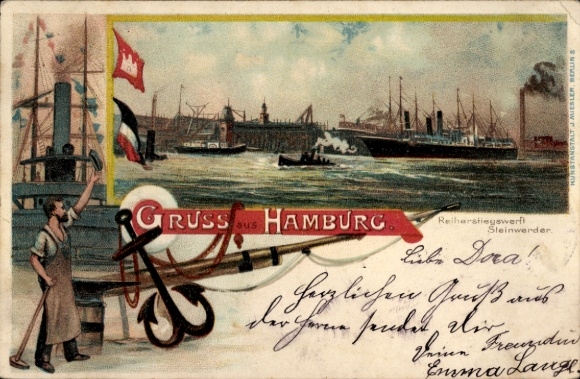 KUNSTANSTALT J. MIESLER, BERLIN S
GRUSS aus HAMBURG.
Reiherstiegswerft
Steinwerder.
Liebe Dora!
Herzlichen Gruß aus
der Ferne sendet Dir
Deine Freundin
Emma Lange.